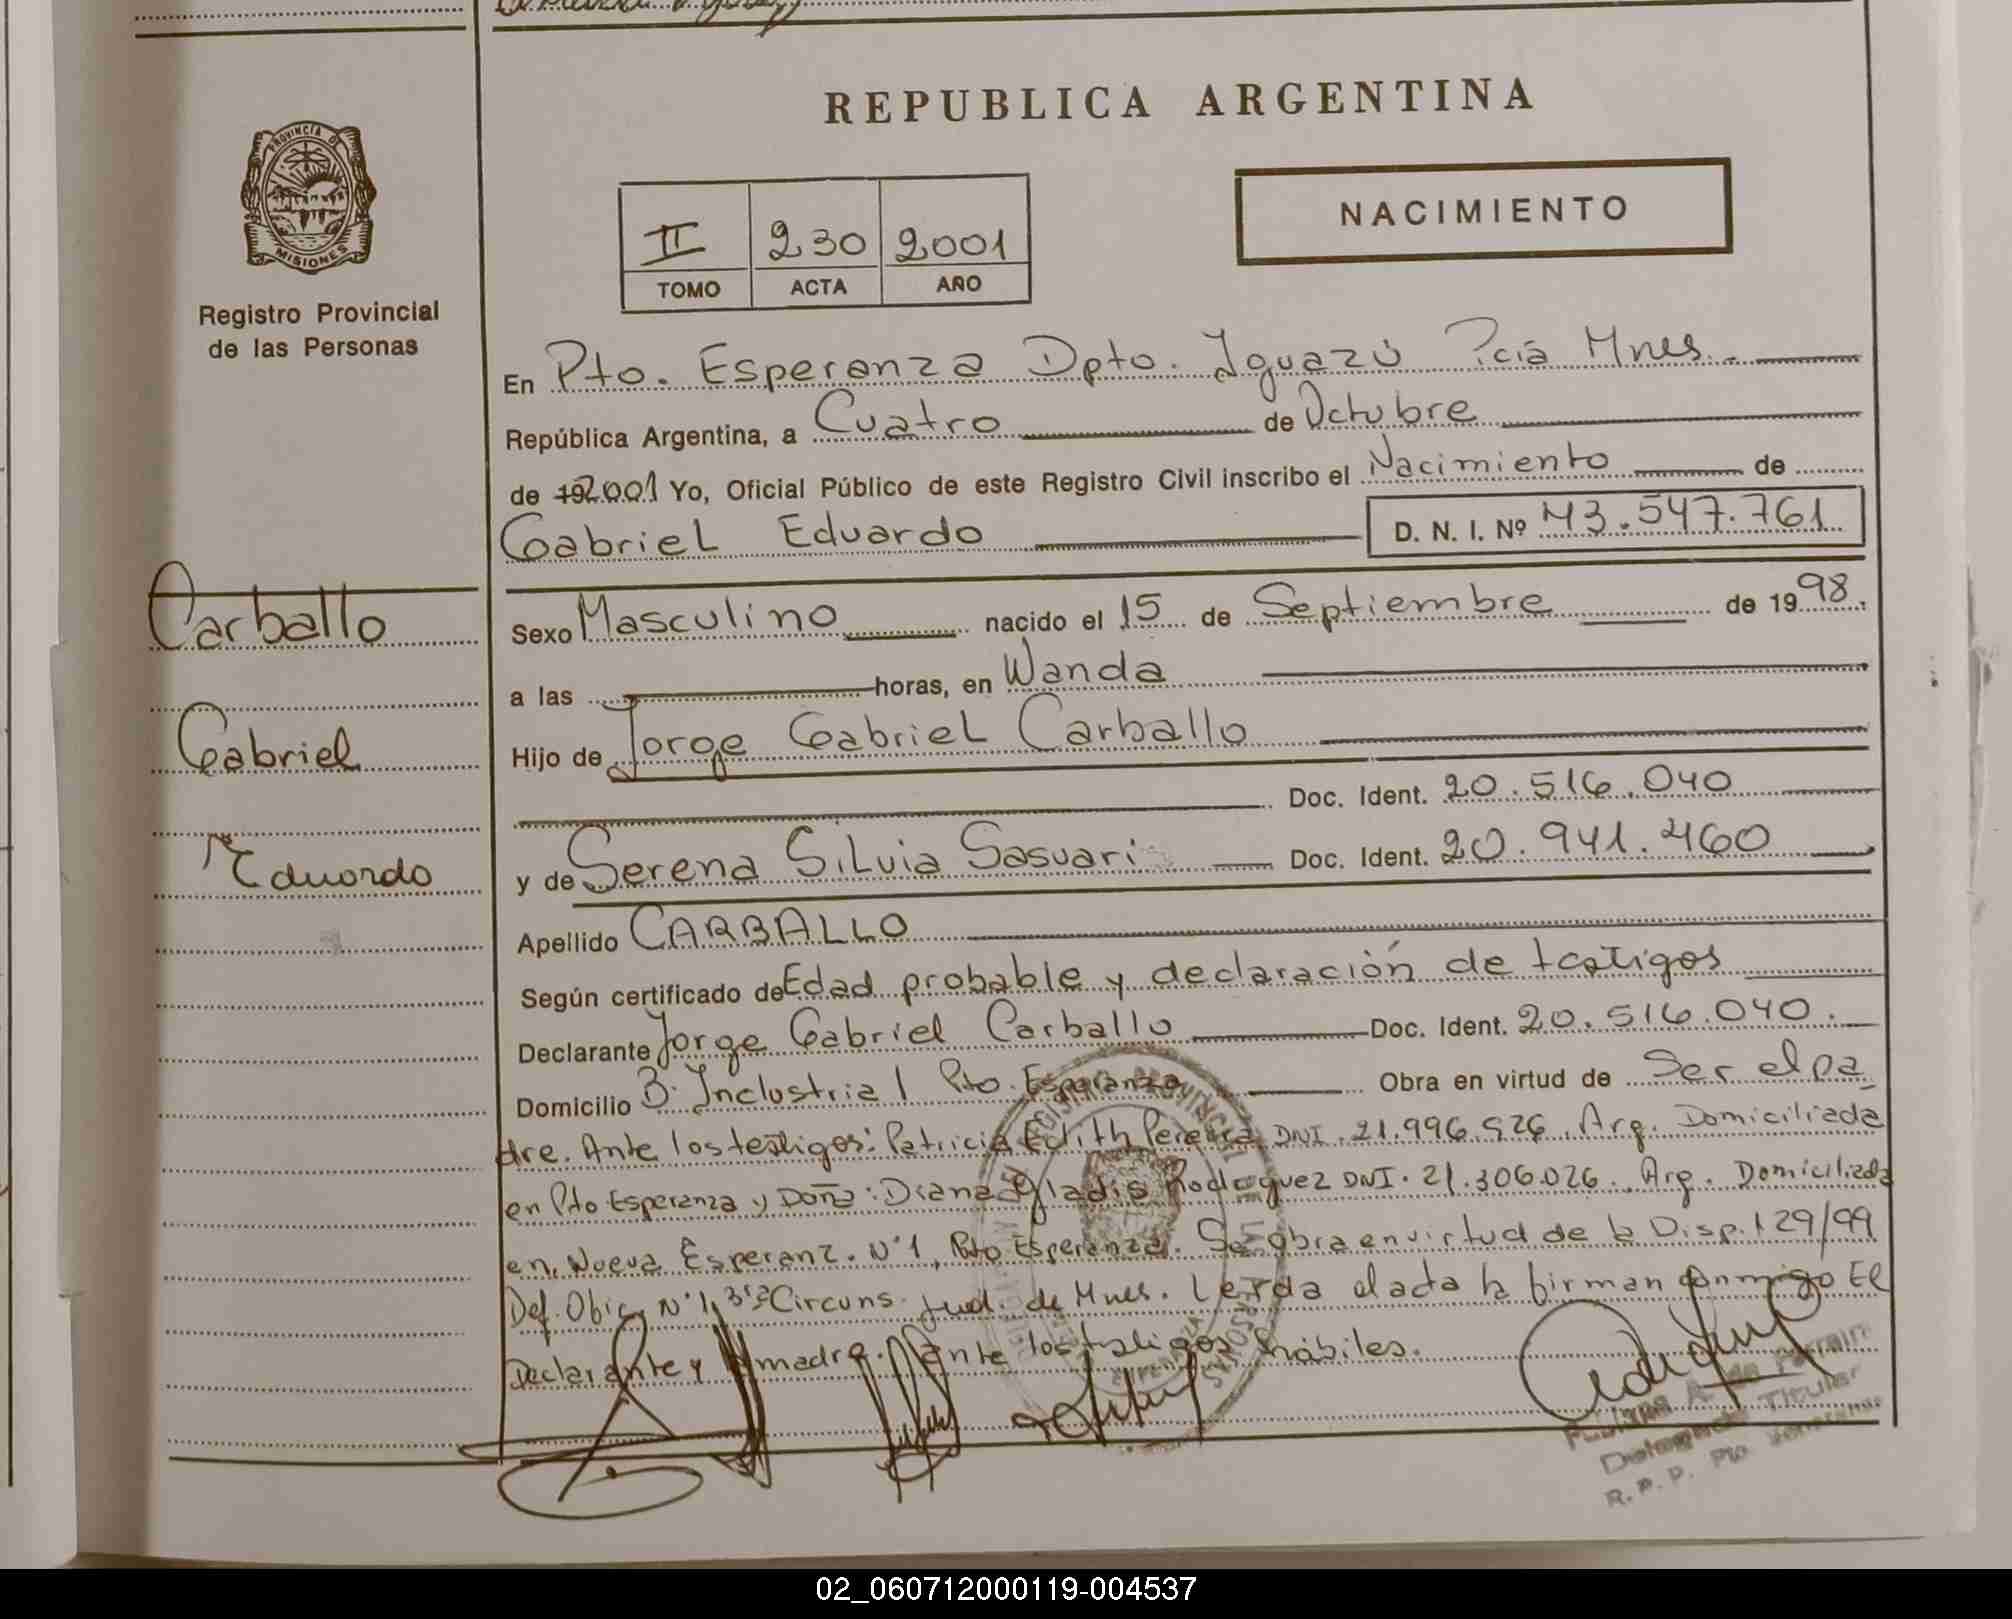 REPUBLICA ARGENTINA
PROVINCIA DE MISIONES
Registro Provincial
de las Personas
NACIMIENTO
II 230 2001
TOMO ACTA AÑO
En Pto. Esperanza Dpto. Iguazú Pcia Mnes.
República Argentina, a Cuatro de Octubre
de 192001 Yo, Oficial Público de este Registro Civil inscribo el Nacimiento de
Gabriel Eduardo D. N. I. Nº 43.547.761
Carballo
Gabriel
Eduardo
Sexo Masculino nacido el 15 de Septiembre de 1998.
a las horas, en Wanda
Hijo de Jorge Gabriel Carballo
Doc. Ident. 20.516.040
y de Serena Silvia Sasuari Doc. Ident. 20.941.460
Apellido CARBALLO
Según certificado de Edad probable y declaración de testigos
Declarante Jorge Gabriel Carballo Doc. Ident. 20.516.040.
Domicilio B. Industrial Pto. Esperanza Obra en virtud de Ser el pa
dre. Ante los testigos: Patricia Edith Pereira DNI. 21.996.926 Arg. Domiciliada
en Pto Esperanza y Doña: Diana Gladis Rodriguez DNI. 21.306.026. Arg. Domiciliada
en Nueva Esperanz. N°1, Pto Esperanza. Se obra en virtud de la Disp. 129/99
Def. Ofic. N°1, 3ra Circuns. Jud. de Mnes. Leida el acta la firman conmigo El
Declarante y la madre. Ante los testigos hábiles.
Delegada Titular
R. P. P. Pto
02_060712000119-004537